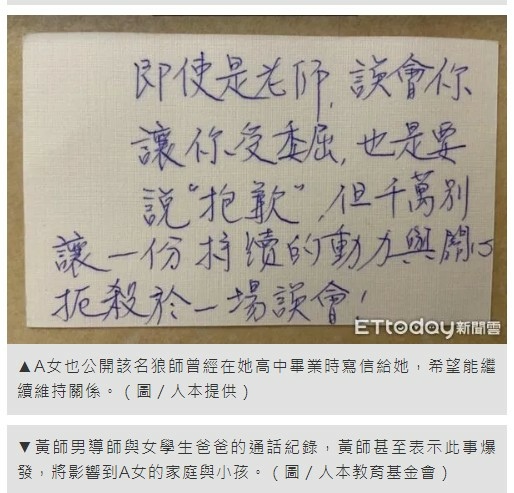 即使是老師,誤會你
讓你受委屈,也是要
說"抱歉",但千萬別
讓一份持續的動力與關心
扼殺於一場誤會!
ETtoday新聞雲
▲A女也公開該名狼師曾經在她高中畢業時寫信給她，希望能繼
續維持關係。（圖／人本提供）
▼黃師男導師與女學生爸爸的通話紀錄，黃師甚至表示此事爆
發，將影響到A女的家庭與小孩。（圖／人本教育基金會）